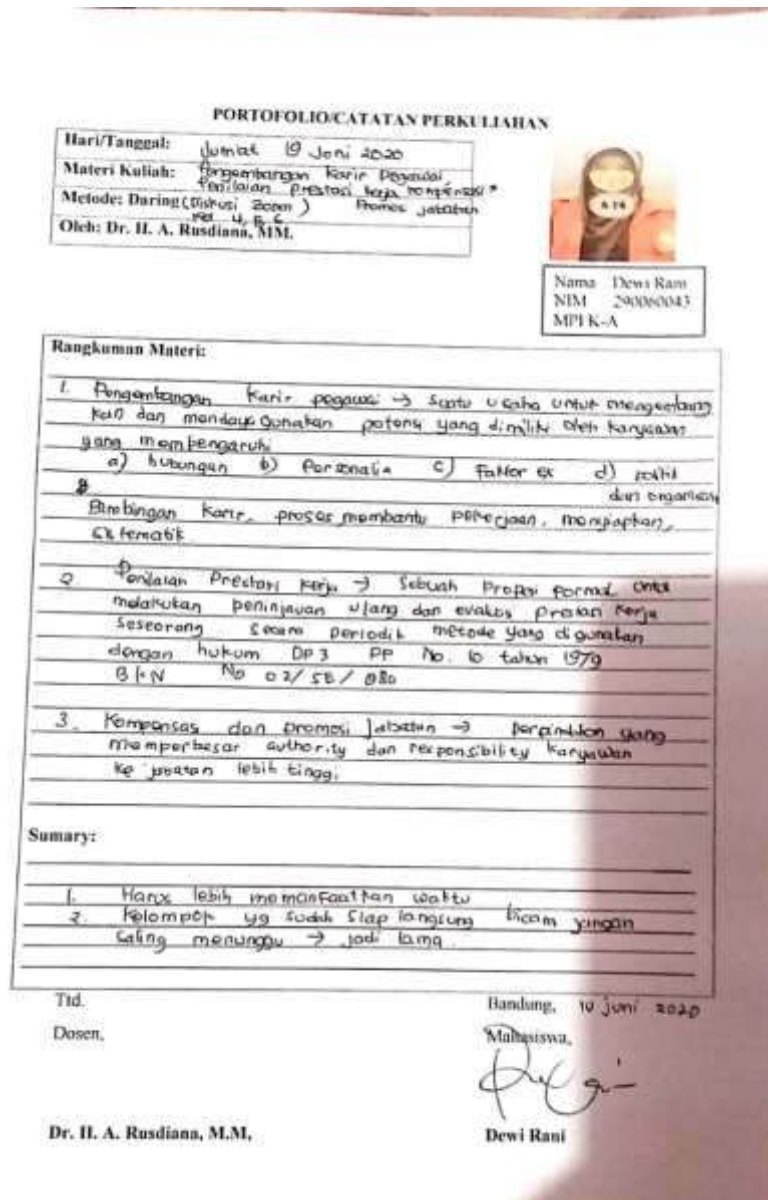 PORTOFOLIO/CATATAN PERKULIAHAN
Hari/Tanggal: Jumat 19 Juni 2020
Materi Kuliah: Pengembangan Karir Pegawai,
Penilaian prestasi kerja kompensasi *
Metode: Daring (Diskusi Zoom) Promos jabatan
kel 4, 5, 6
Oleh: Dr. H. A. Rusdiana, MM.
A 14
Nama Dewi Rani
NIM 290060043
MPI K-A
Rangkuman Materi:
1. Pengembangan Karir pegawai → Suatu usaha untuk mengembang
kan dan mendaya gunakan potensi yang dimiliki oleh karyawan
yang mempengaruhi
a) hubungan b) Personalia c) Faktor ex d) politik
dan organisasi
Bimbingan Karir, proses membantu pekerjaan, menyiapkan,
Sistematik
2 Penilaian Prestasi kerja → Sebuah formal
melakukan peninjauan ulang dan kerja
Seseorang Secara periodik metode yang digunakan
dengan hukum DP3 PP No. 10 tahun 1979
No 02/
3. Kompensas dan promosi Jabatan → yang
memperbesar authority dan responsibility karyawan
ke jabatan lebih tinggi.
Sumary:
1. Harus lebih memanfaatkan waktu
2. Kelompok yg sudah siap langsung jangan
saling menunggu → jadi lama
Ttd. Bandung, juni 2020
Dosen, Mahasiswa,
Dr. H. A. Rusdiana, M.M, Dewi Rani